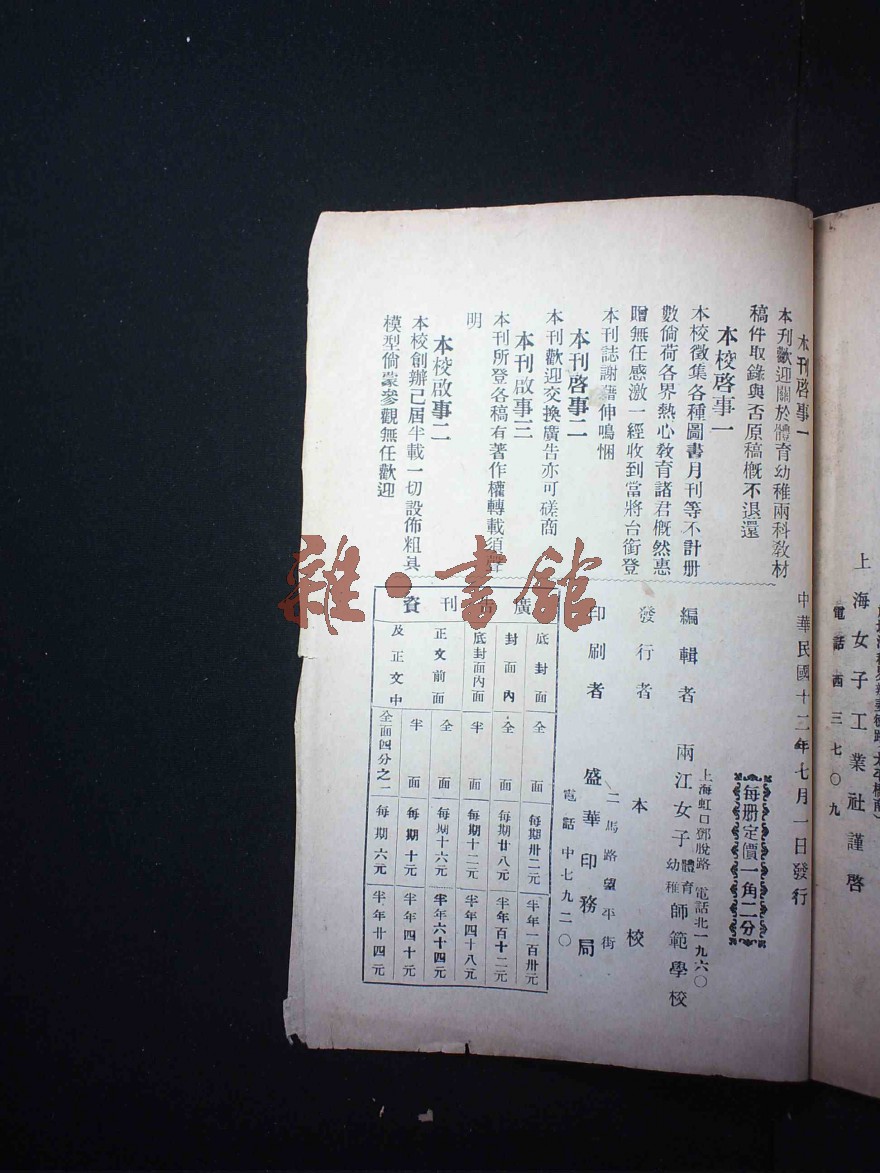 上海女子工業社謹啓
電話西三七〇九
本刊啓事一
本刊歡迎關於體育幼稚兩科敎材
稿件取錄與否原稿概不退還
本校啓事一
本校徵集各種圖書月刊等不計册
數倘荷各界熱心敎育諸君慨然惠
贈無任感激一經收到當將台銜登
本刊誌謝藉伸鳴悃
本刊啓事二
本刊歡迎交換廣告亦可磋商
本刊啟事三
本刊所登各稿有著作權轉載須聲
明
本校啟事二
本校創辦已屆半載一切設佈粗具
模型倘蒙參觀無任歡迎
中華民國十二年七月一日發行
每册定價一角二分
上海虹口鄧脫路 電話北一九六〇
編輯者 兩江女子體育幼稚師範學校
發行者 本校
二馬路望平街
印刷者 盛華印務局
電話中七九二〇
廣告刊資
底封面 全面 每期卅二元 半年一百卅元
封面內 全面 每期廿八元 半年百十二元
底封面內面 半面 每期十二元 半年四十八元
正文前面 全面 每期十六元 半年六十四元
及正文中 半面 每期十元 半年四十元
全面四分之一 每期六元 半年廿四元
雜·書館